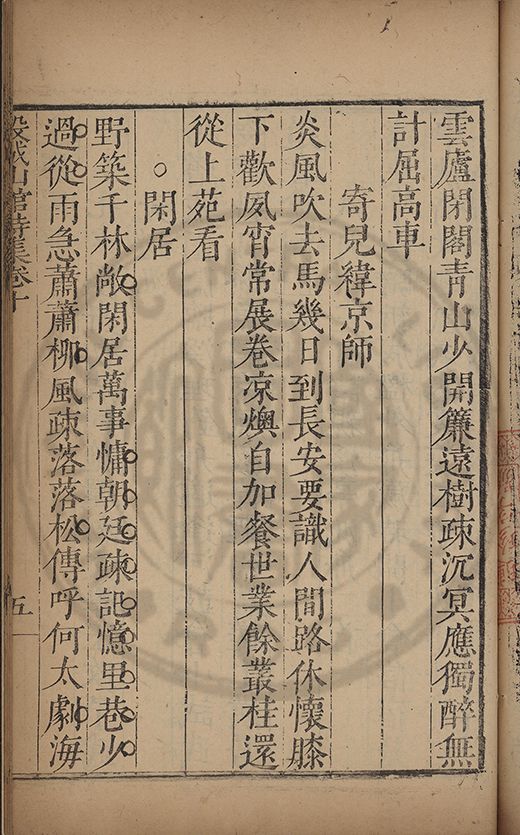 雲廬閉閣青山少開簾遠樹疎沉冥應獨醉無
計屈高車
寄兒緯京師
炎風吹去馬幾日到長安要識人間路休懷膝
下歡夙宵常展卷凉燠自加餐世業餘叢桂還
從上苑看
○閑居
野築千林敞閑居萬事慵朝廷疎記憶里巷少
過從雨急蕭蕭柳風疎落落松傳呼何太劇海
山館詩集卷十
五